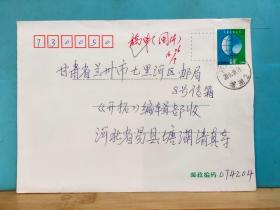 730050
甘肃省兰州市七里河区邮局
8号信箱
《开拓》编辑部收
河北省易县塘湖清真寺
邮政编码 074204